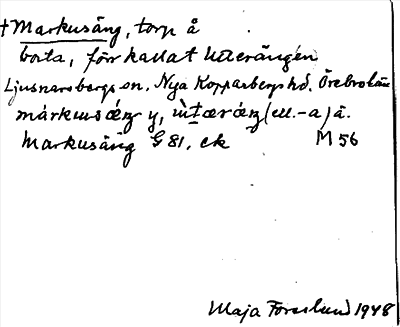 †Markusäng, torp å
borta, förr kallat Utterängen
Ljusnarsbergs sn. Nya Kopparbergs hd. Örebro län
márkusǽŋ y, ùtærǽŋ (ell. -a) ä.
Markusäng G 81. ek M 56
Maja Forslund 1948